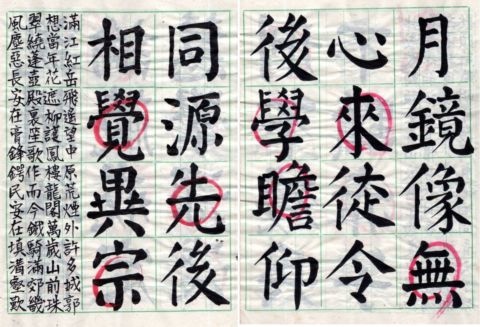 月鏡像無
心來徒令
後學瞻仰
同源先後
相覺異宗
滿江紅岳飛遙望中原荒煙外許多城郭
想當年花遮柳護鳳樓龍閣萬歲山前珠
翠繞蓬壺殿裏笙歌作而今鐵騎滿郊畿
風塵惡長安在膏鋒鍔民安在填溝壑歎